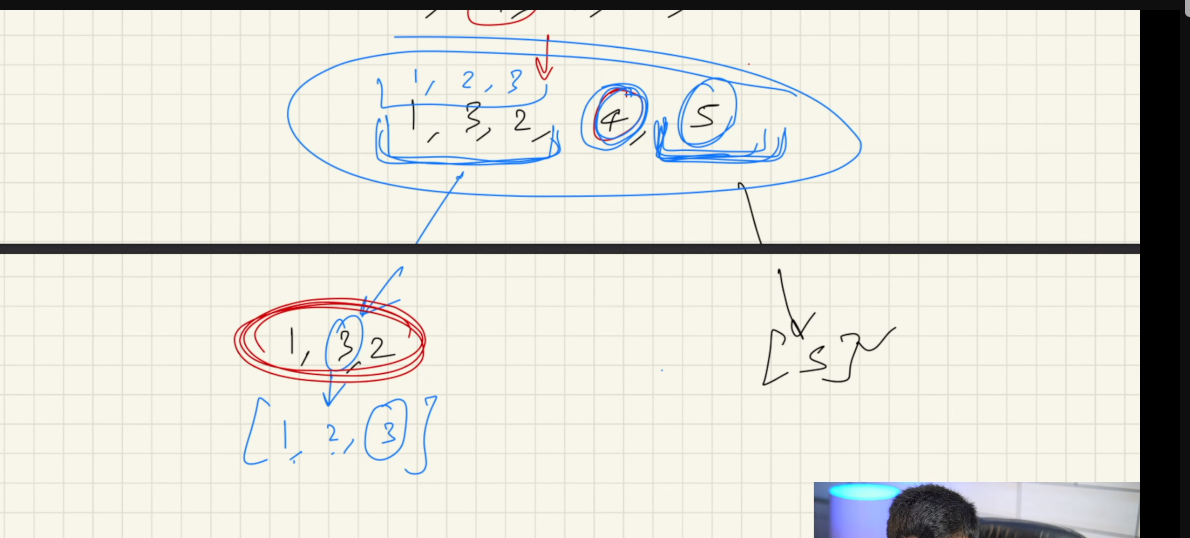 1, 2, 3
1, 3, 2, 4, 5
1, 3, 2
[5]
[1, 2, 3]